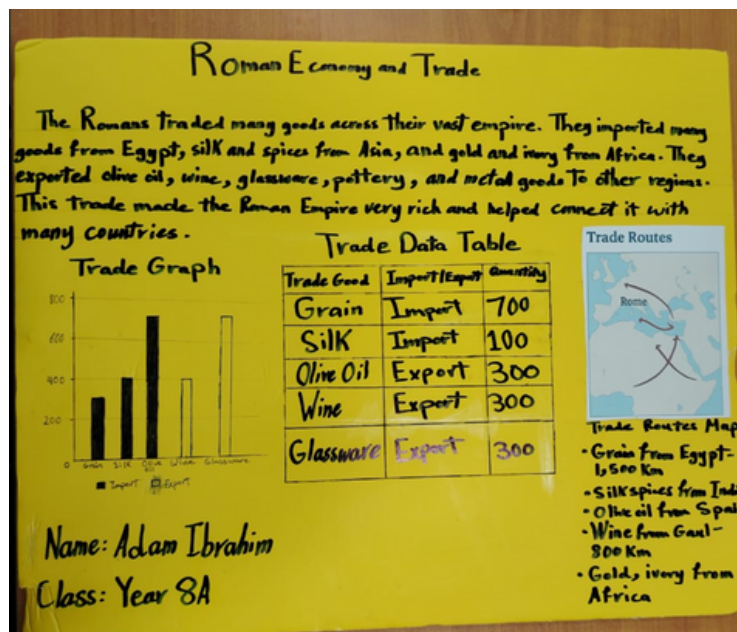 Roman Economy and Trade
The Romans traded many goods across their vast empire. They imported many
goods from Egypt, silk and spices from Asia, and gold and ivory from Africa. They
exported olive oil, wine, glassware, pottery, and metal goods To other regions.
This trade made the Roman Empire very rich and helped connect it with
many countries.
Trade Graph
800
600
400
200
0
Grain Silk Olive Oil Wine Glassware
Import Export
Trade Data Table
Trade Good Import/Export Quantity
Grain Import 700
Silk Import 100
Olive Oil Export 300
Wine Export 300
Glassware Export 300
Trade Routes
Rome
Trade Routes Map
• Grain from Egypt-
1,500 Km
• Silk spices from Indi
• Olive oil from Spai
• Wine from Gaul-
800 Km
• Gold, ivory from
Africa
Name: Adam Ibrahim
Class: Year 8A